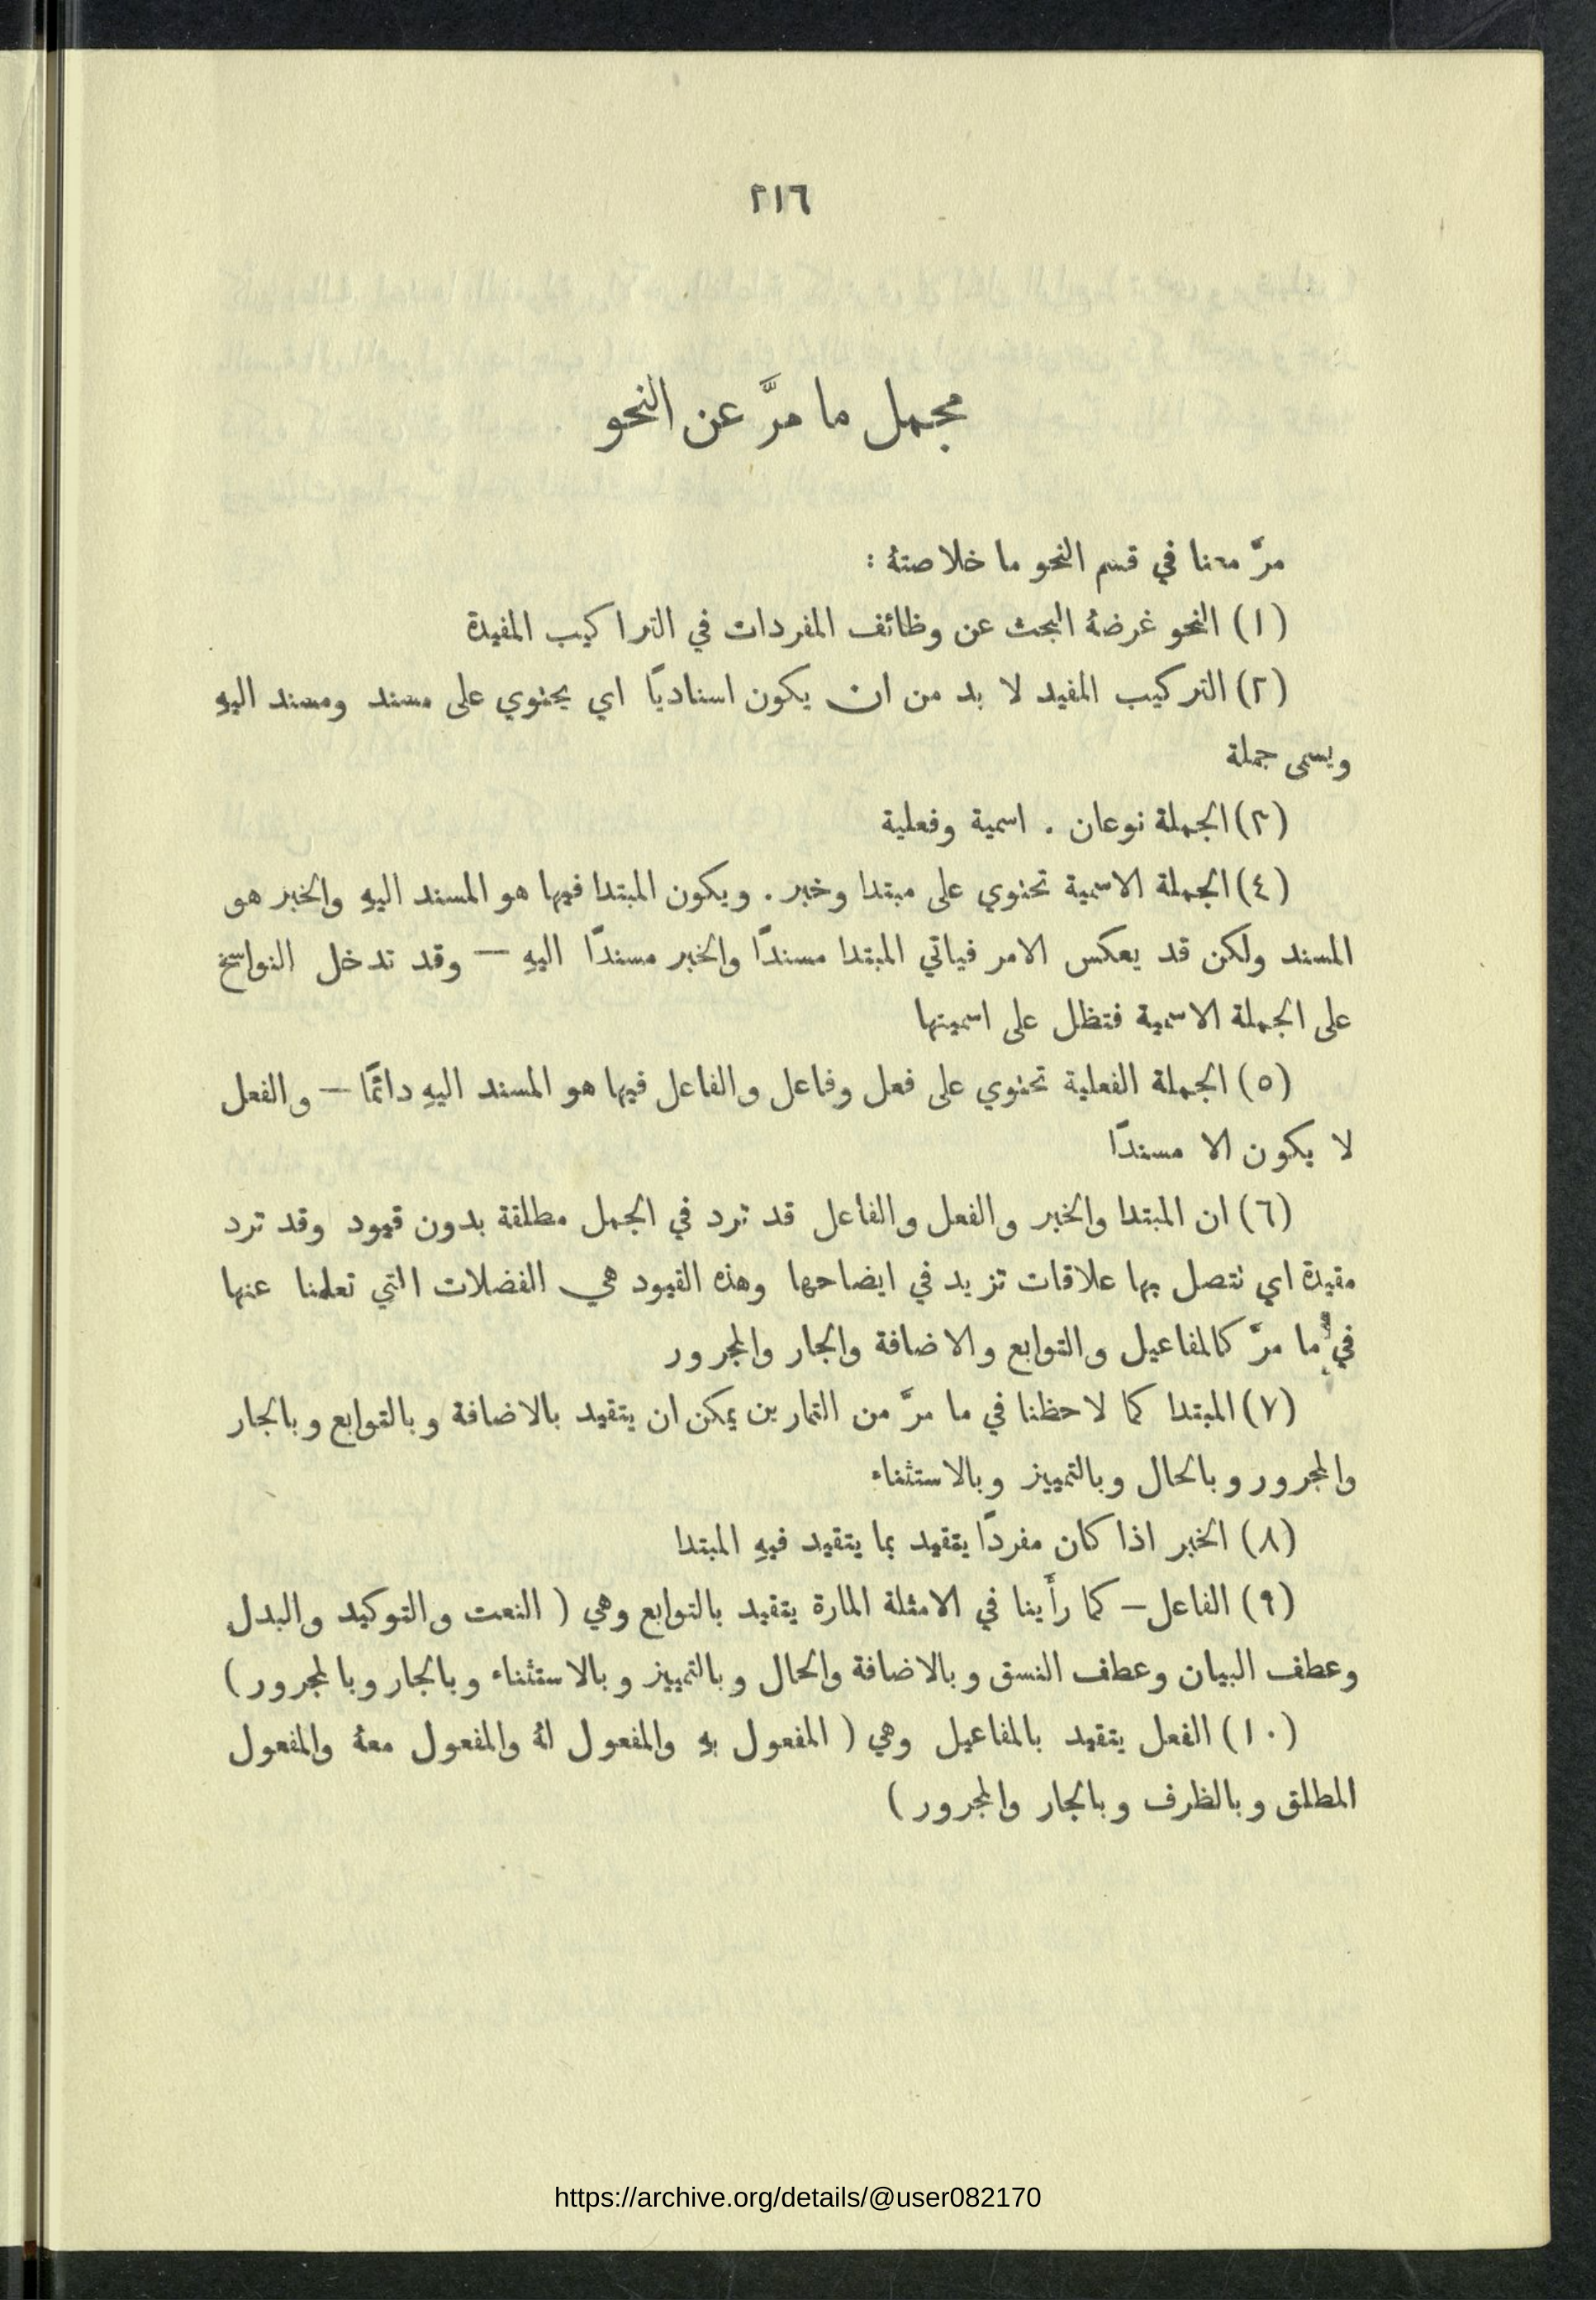 ٢١٦
مجمل ما مرَّ عن النحو
مرَّ معنا في قسم النحو ما خلاصتهُ :
(١) النحو غرضهُ البحث عن وظائف المفردات في التراكيب المفيدة
(٢) التركيب المفيد لا بد من ان يكون اسناديًا اي يحتوي على مسند ومسند اليهِ
ويسمى جملة
(٣) الجملة نوعان . اسمية وفعلية
(٤) الجملة الاسمية تحتوي على مبتدا وخبر . ويكون المبتدا فيها هو المسند اليهِ والخبر هو
المسند ولكن قد يعكس الامر فياتي المبتدا مسندًا والخبر مسندًا اليهِ — وقد تدخل النواسخ
على الجملة الاسمية فتظل على اسميتها
(٥) الجملة الفعلية تحتوي على فعل وفاعل والفاعل فيها هو المسند اليهِ دائمًا — والفعل
لا يكون الا مسندًا
(٦) ان المبتدا والخبر والفعل والفاعل قد ترد في الجمل مطلقة بدون قيود وقد ترد
مقيدة اي تتصل بها علاقات تزيد في ايضاحها وهذه القيود هي الفضلات التي تعلمنا عنها
في ما مرَّ كالمفاعيل والتوابع والاضافة والجار والمجرور
(٧) المبتدا كما لاحظنا في ما مرَّ من التمارين يمكن ان يتقيد بالاضافة وبالتوابع وبالجار
والمجرور وبالحال وبالتمييز وبالاستثناء
(٨) الخبر اذا كان مفردًا يتقيد بما يتقيد فيهِ المبتدا
(٩) الفاعل — كما رأينا في الامثلة المارة يتقيد بالتوابع وهي ( النعت والتوكيد والبدل
وعطف البيان وعطف النسق وبالاضافة والحال وبالتمييز وبالاستثناء وبالجار وبالمجرور )
(١٠) الفعل يتقيد بالمفاعيل وهي ( المفعول بهِ والمفعول لهُ والمفعول معهُ والمفعول
المطلق وبالظرف وبالجار والمجرور )
https://archive.org/details/@user082170